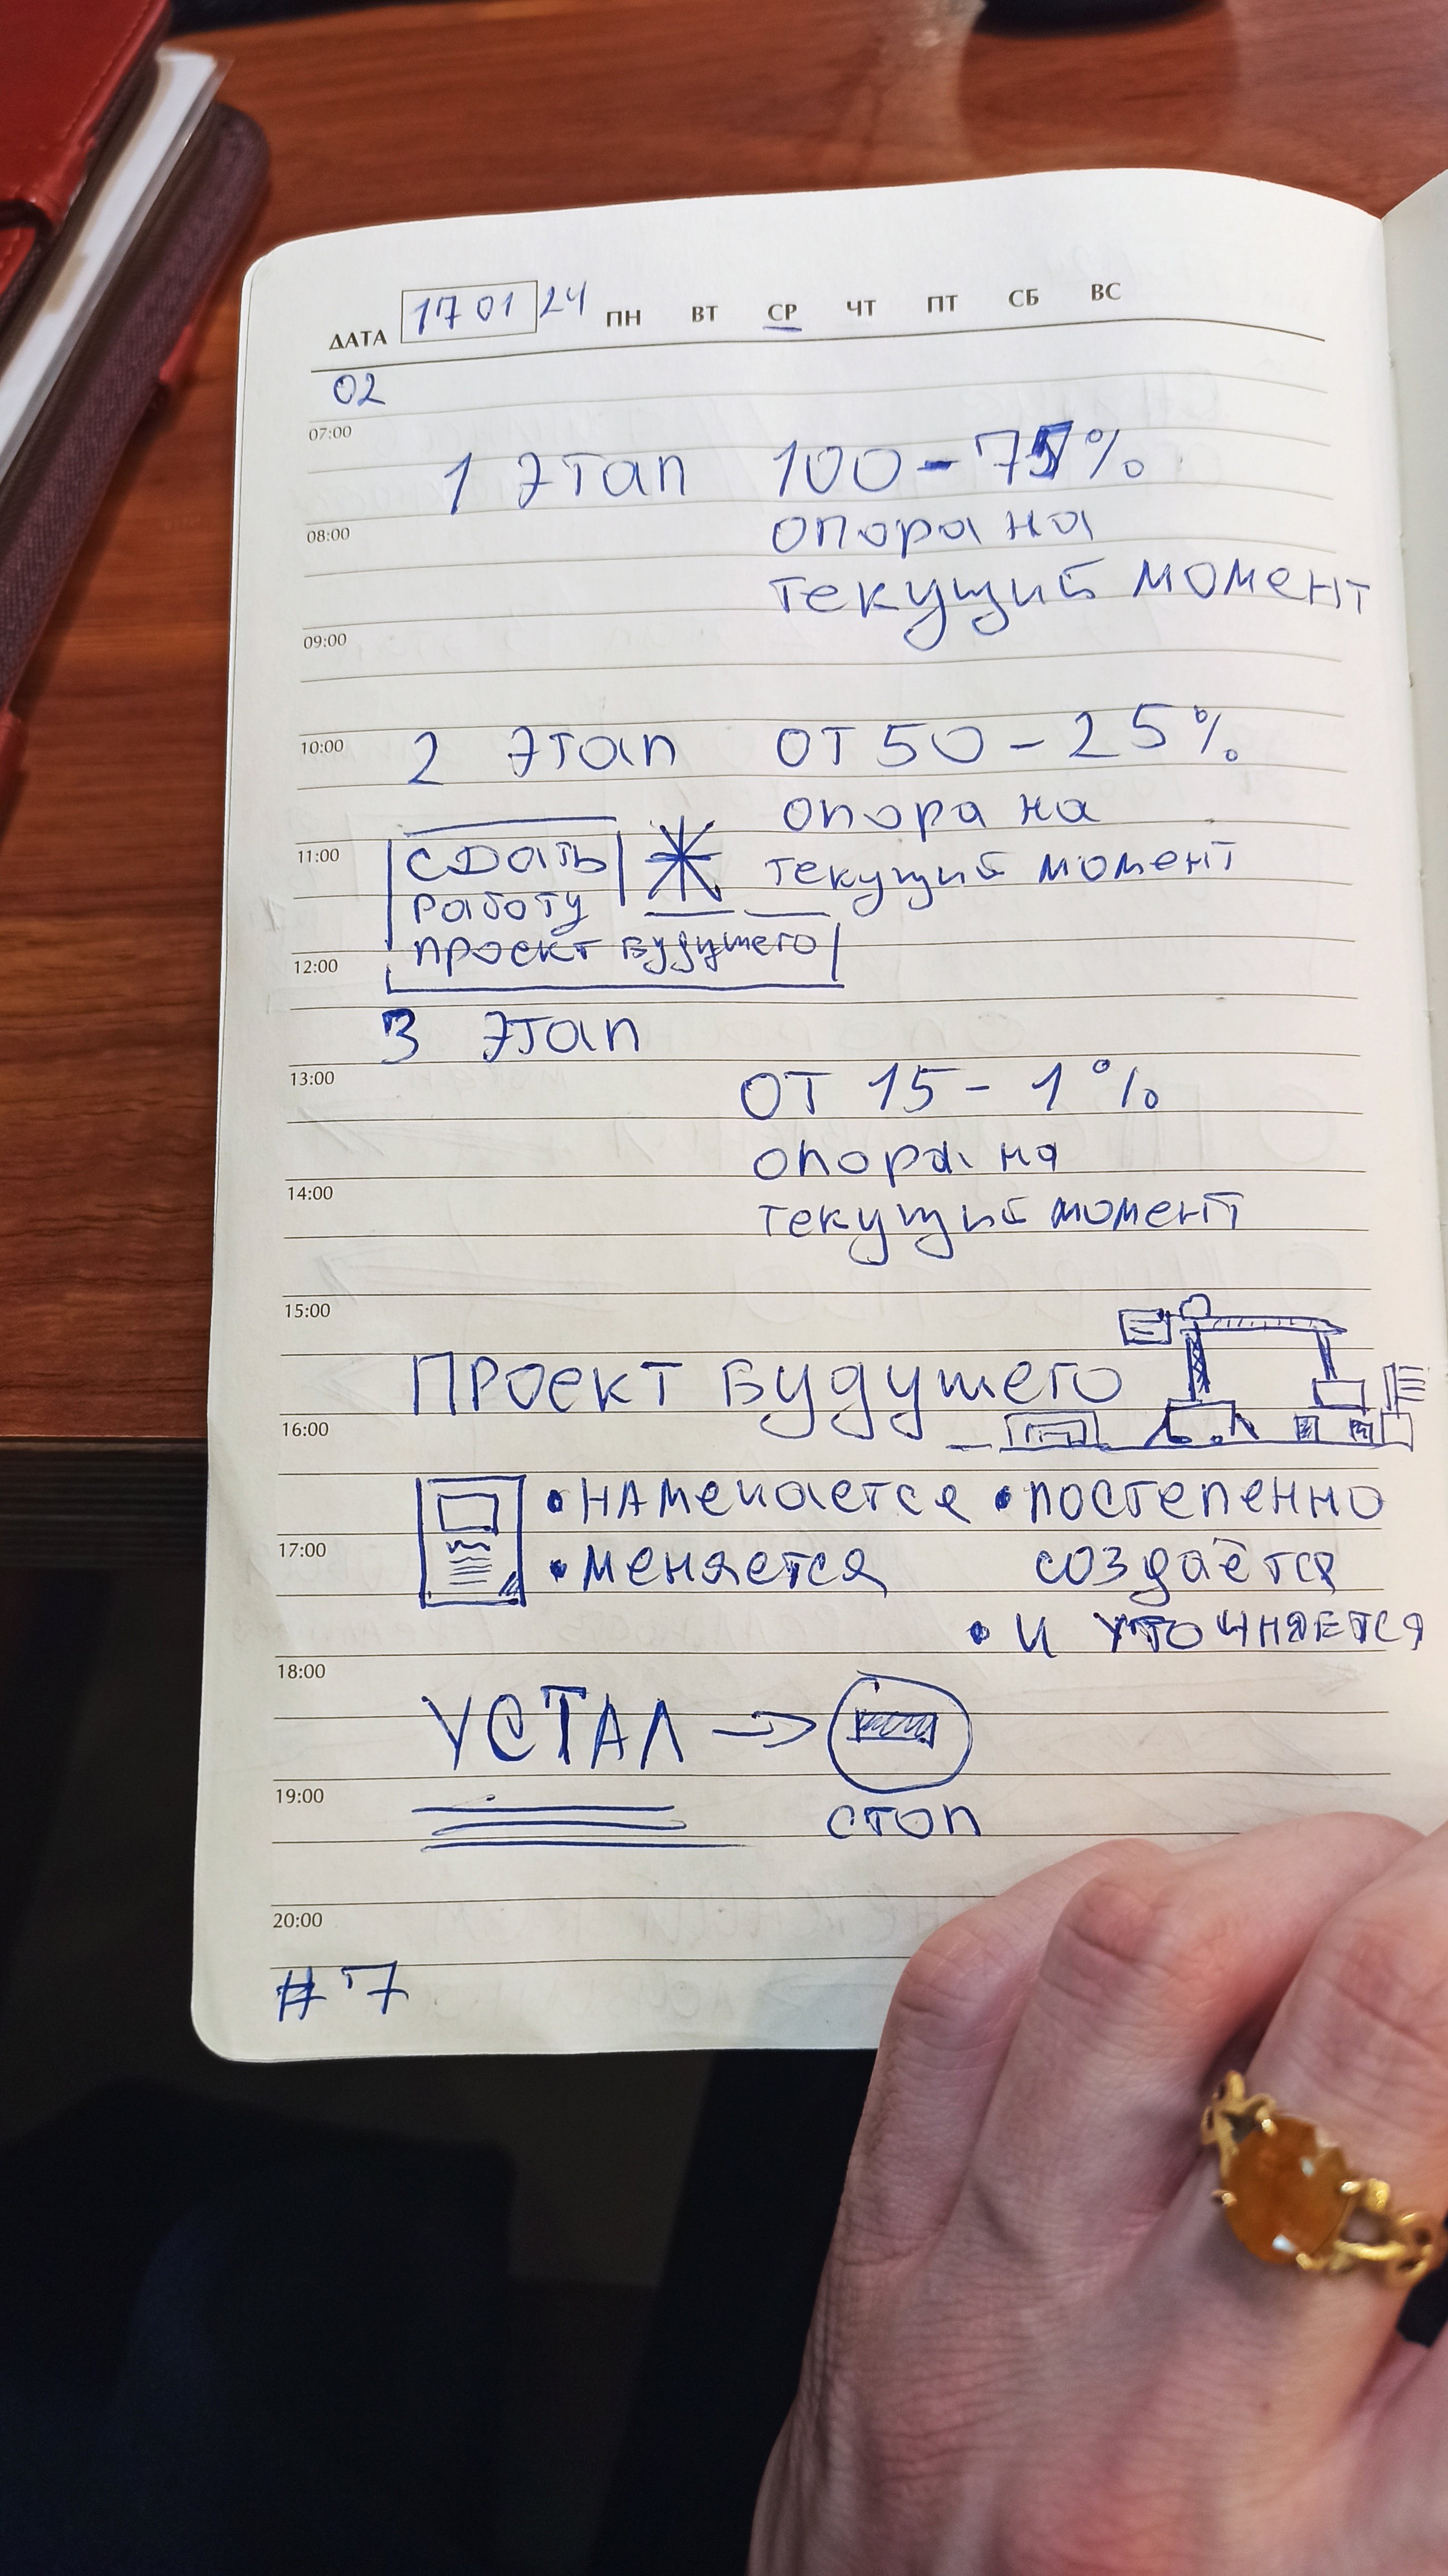 ДАТА 17 01 24 ПН ВТ СР ЧТ ПТ СБ ВС
02
07:00
1 этап 100-75%
08:00 опора на
текущий момент
09:00
10:00 2 этап от 50-25%
опора на
11:00 сдать текущий момент
работу
12:00 проект будущего
3 этап
13:00 от 15-1%
опора на
14:00
текущий момент
15:00
Проект будущего
16:00
• намечается • постепенно
17:00 • меняется создаётся
• и уточняется
18:00
УСТАЛ →
19:00 стоп
20:00
#7